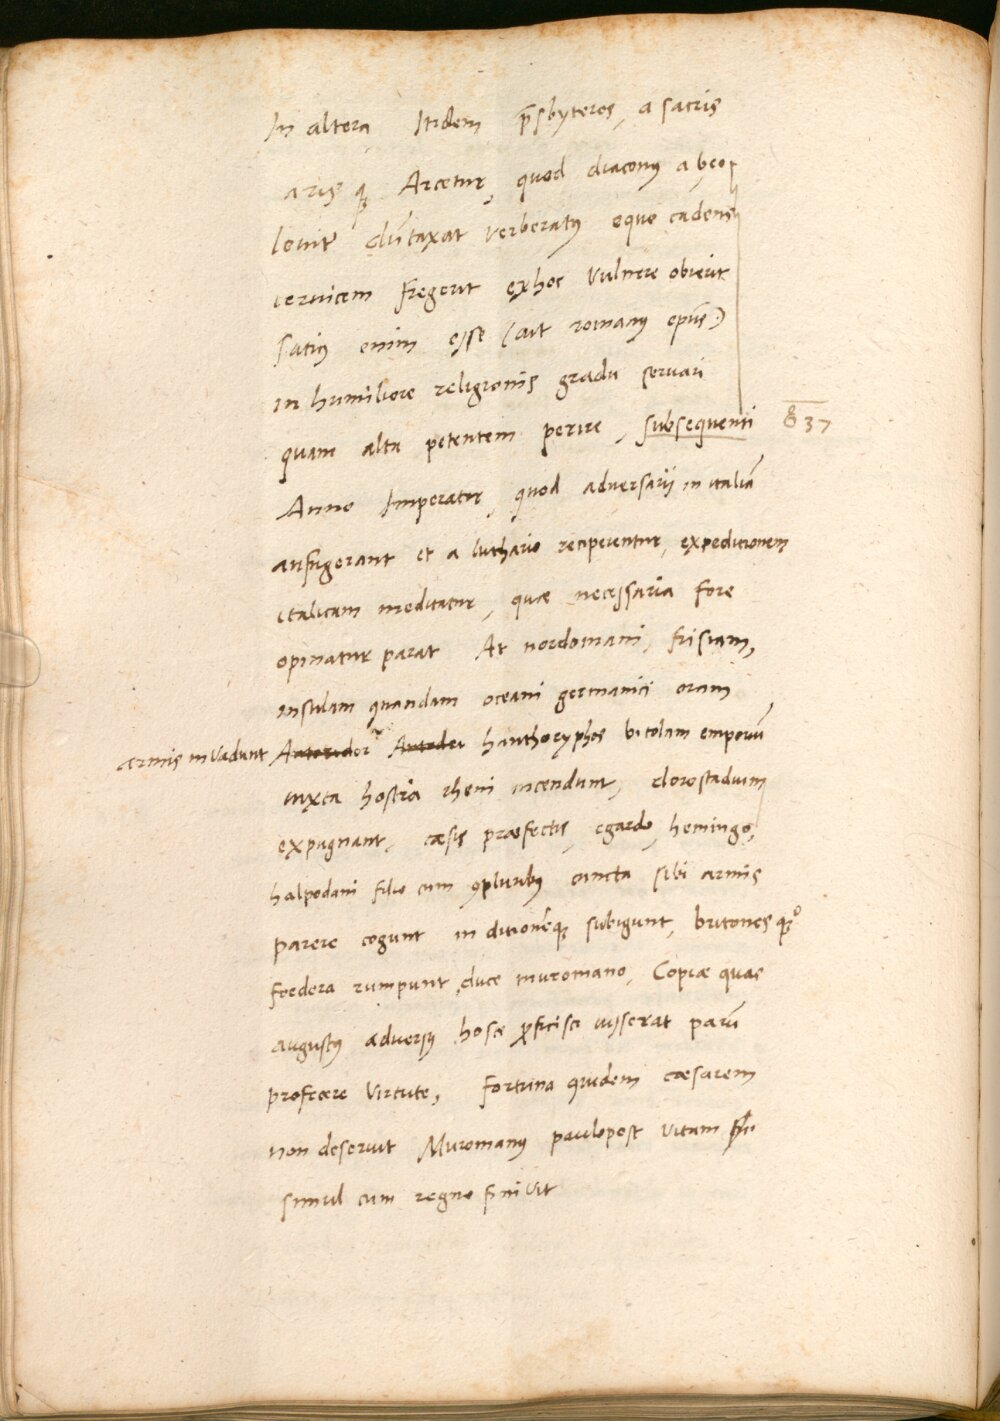 In altera Itidem p̄sbyteros, a sacris
aris q; Arcetur, quod diaconus ab eo
leuiter dūtaxat verberatus equo cadens
ceruicem fregerit ex hoc vulnere obierit
satius enim esse (ait romanus ep̄us)
in humiliore religionis gradu seruari
quam alta petentem perire, subsequenti
837
Anno Imperator, quod adversarij in italiā
aufugerant et a luthario reciperentur, expeditionem
italicam meditatur, quæ necessaria fore
opinatur parat At nordomani, frisiam,
insulam quandam oceani germanici oram
armis invadunt hanthoryphos bitolam emporiū
iuxta hostia rheni incendunt, dorostadium
expugnant, cæsis præfectis, egardo, hemingo,
halpdani filio cum 9pluribus cuncta sibi armis
parere cogunt in ditionēq; subigunt, britones q;
foedera rumpunt duce muromano, Copiæ quas
augustus adversus hosce proficisci iusserat parū
profecere virtute, fortuna quidem cæsarem
non deseruit Muromanus paulopost vitam
simul cum regno finivit